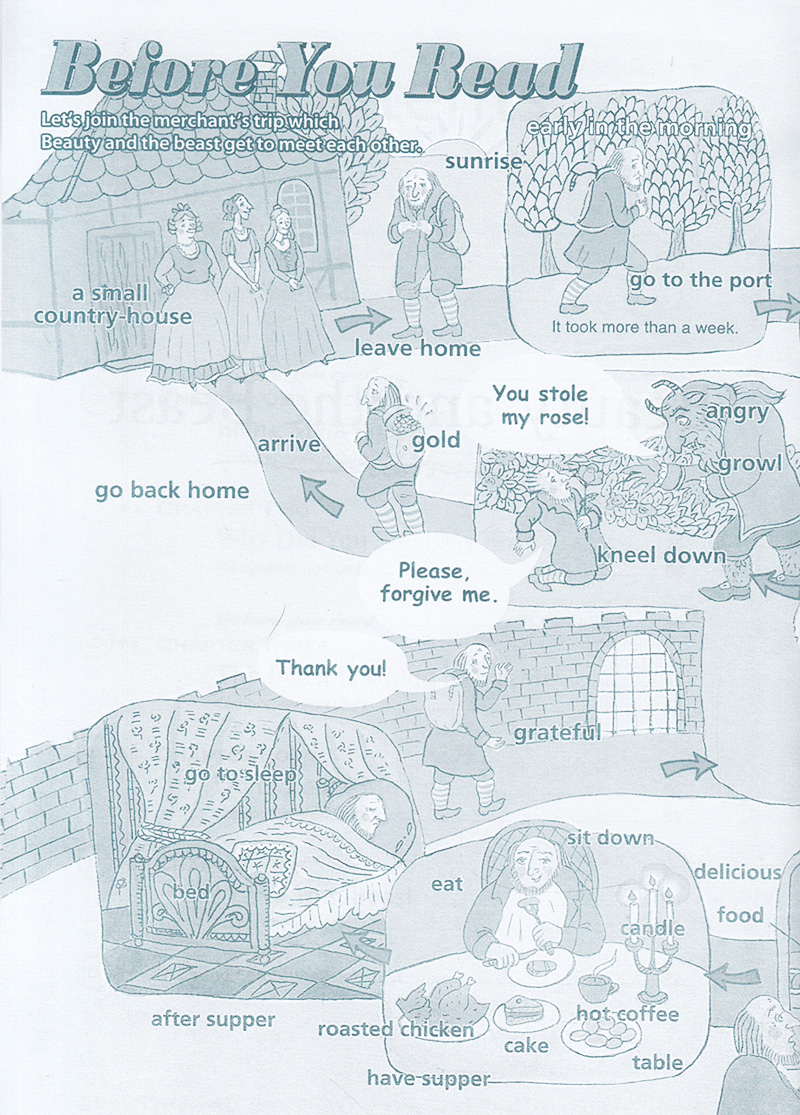 Before You Read
Let's join the merchant's trip which
Beauty and the beast get to meet each other.
sunrise
early in the morning
a small
country-house
leave home
go to the port
It took more than a week.
You stole
my rose!
angry
growl
arrive
gold
go back home
kneel down
Please,
forgive me.
Thank you!
grateful
go to sleep
bed
sit down
eat
delicious
food
candle
after supper
roasted chicken
cake
hot coffee
table
have supper